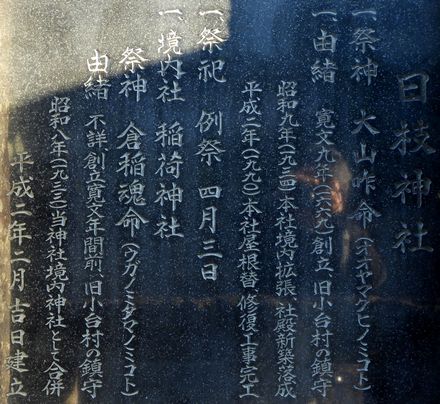 日枝神社
一、祭神　大山咋命（オオヤマクヒノミコト）
一、由緒　寛文九年（一六六九）創立、旧小台村の鎮守
昭和九年（一九三四）本社境内拡張、社殿新築落成
平成二年（一九九〇）本社屋根替、修復工事完工
一、祭祀　例祭　四月三日
一、境内社　稲荷神社
祭神　倉稲魂命（ウガノミタマノミコト）
由緒　不詳創立寛文年間前、旧小台村の鎮守
昭和八年（一九三三）当神社境内神社として合併
平成二年二月吉日建立